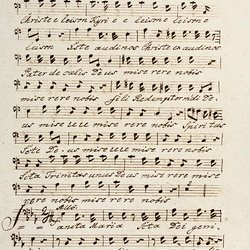 Christe eleison Kyri e e leisone leisone
leison Xste audinos Christe exaudinos
Pater de coelis De us mise rere nobis
mise rere nobis fili Redemptor di De
us mise re re mise rere nobis Spiri tus
Scte De us mise rere mise rere nobis
Scta Trinitas unus de us mise rere mise
rere nobis mise rere nobis
ancta Maria Scta Dei geni